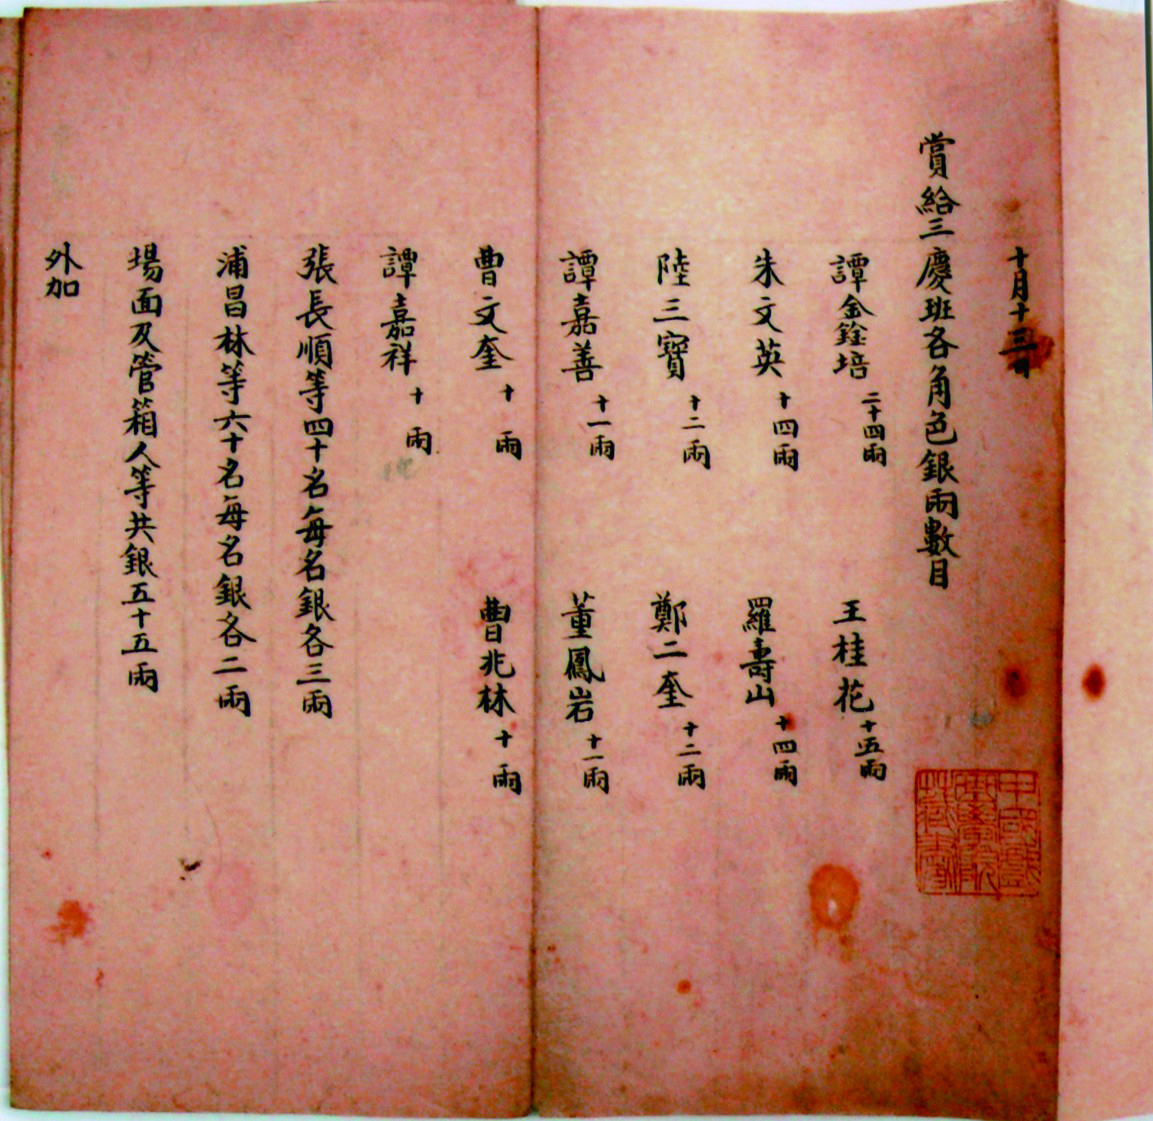 十月十三日
賞給三慶班各角色銀兩數目
譚金銓培 二十四兩 王桂花 十五兩
朱文英 十四兩 羅壽山 十四兩
陸三寶 十二兩 鄭二奎 十二兩
譚嘉善 十一兩 董鳳岩 十一兩
曹文奎 十兩 曹兆林 十兩
譚嘉祥 十兩
張長順等四十名每名銀各三兩
浦昌林等六十名每名銀各二兩
場面及管箱人等共銀五十五兩
外加
中國戲
曲學院
藏書